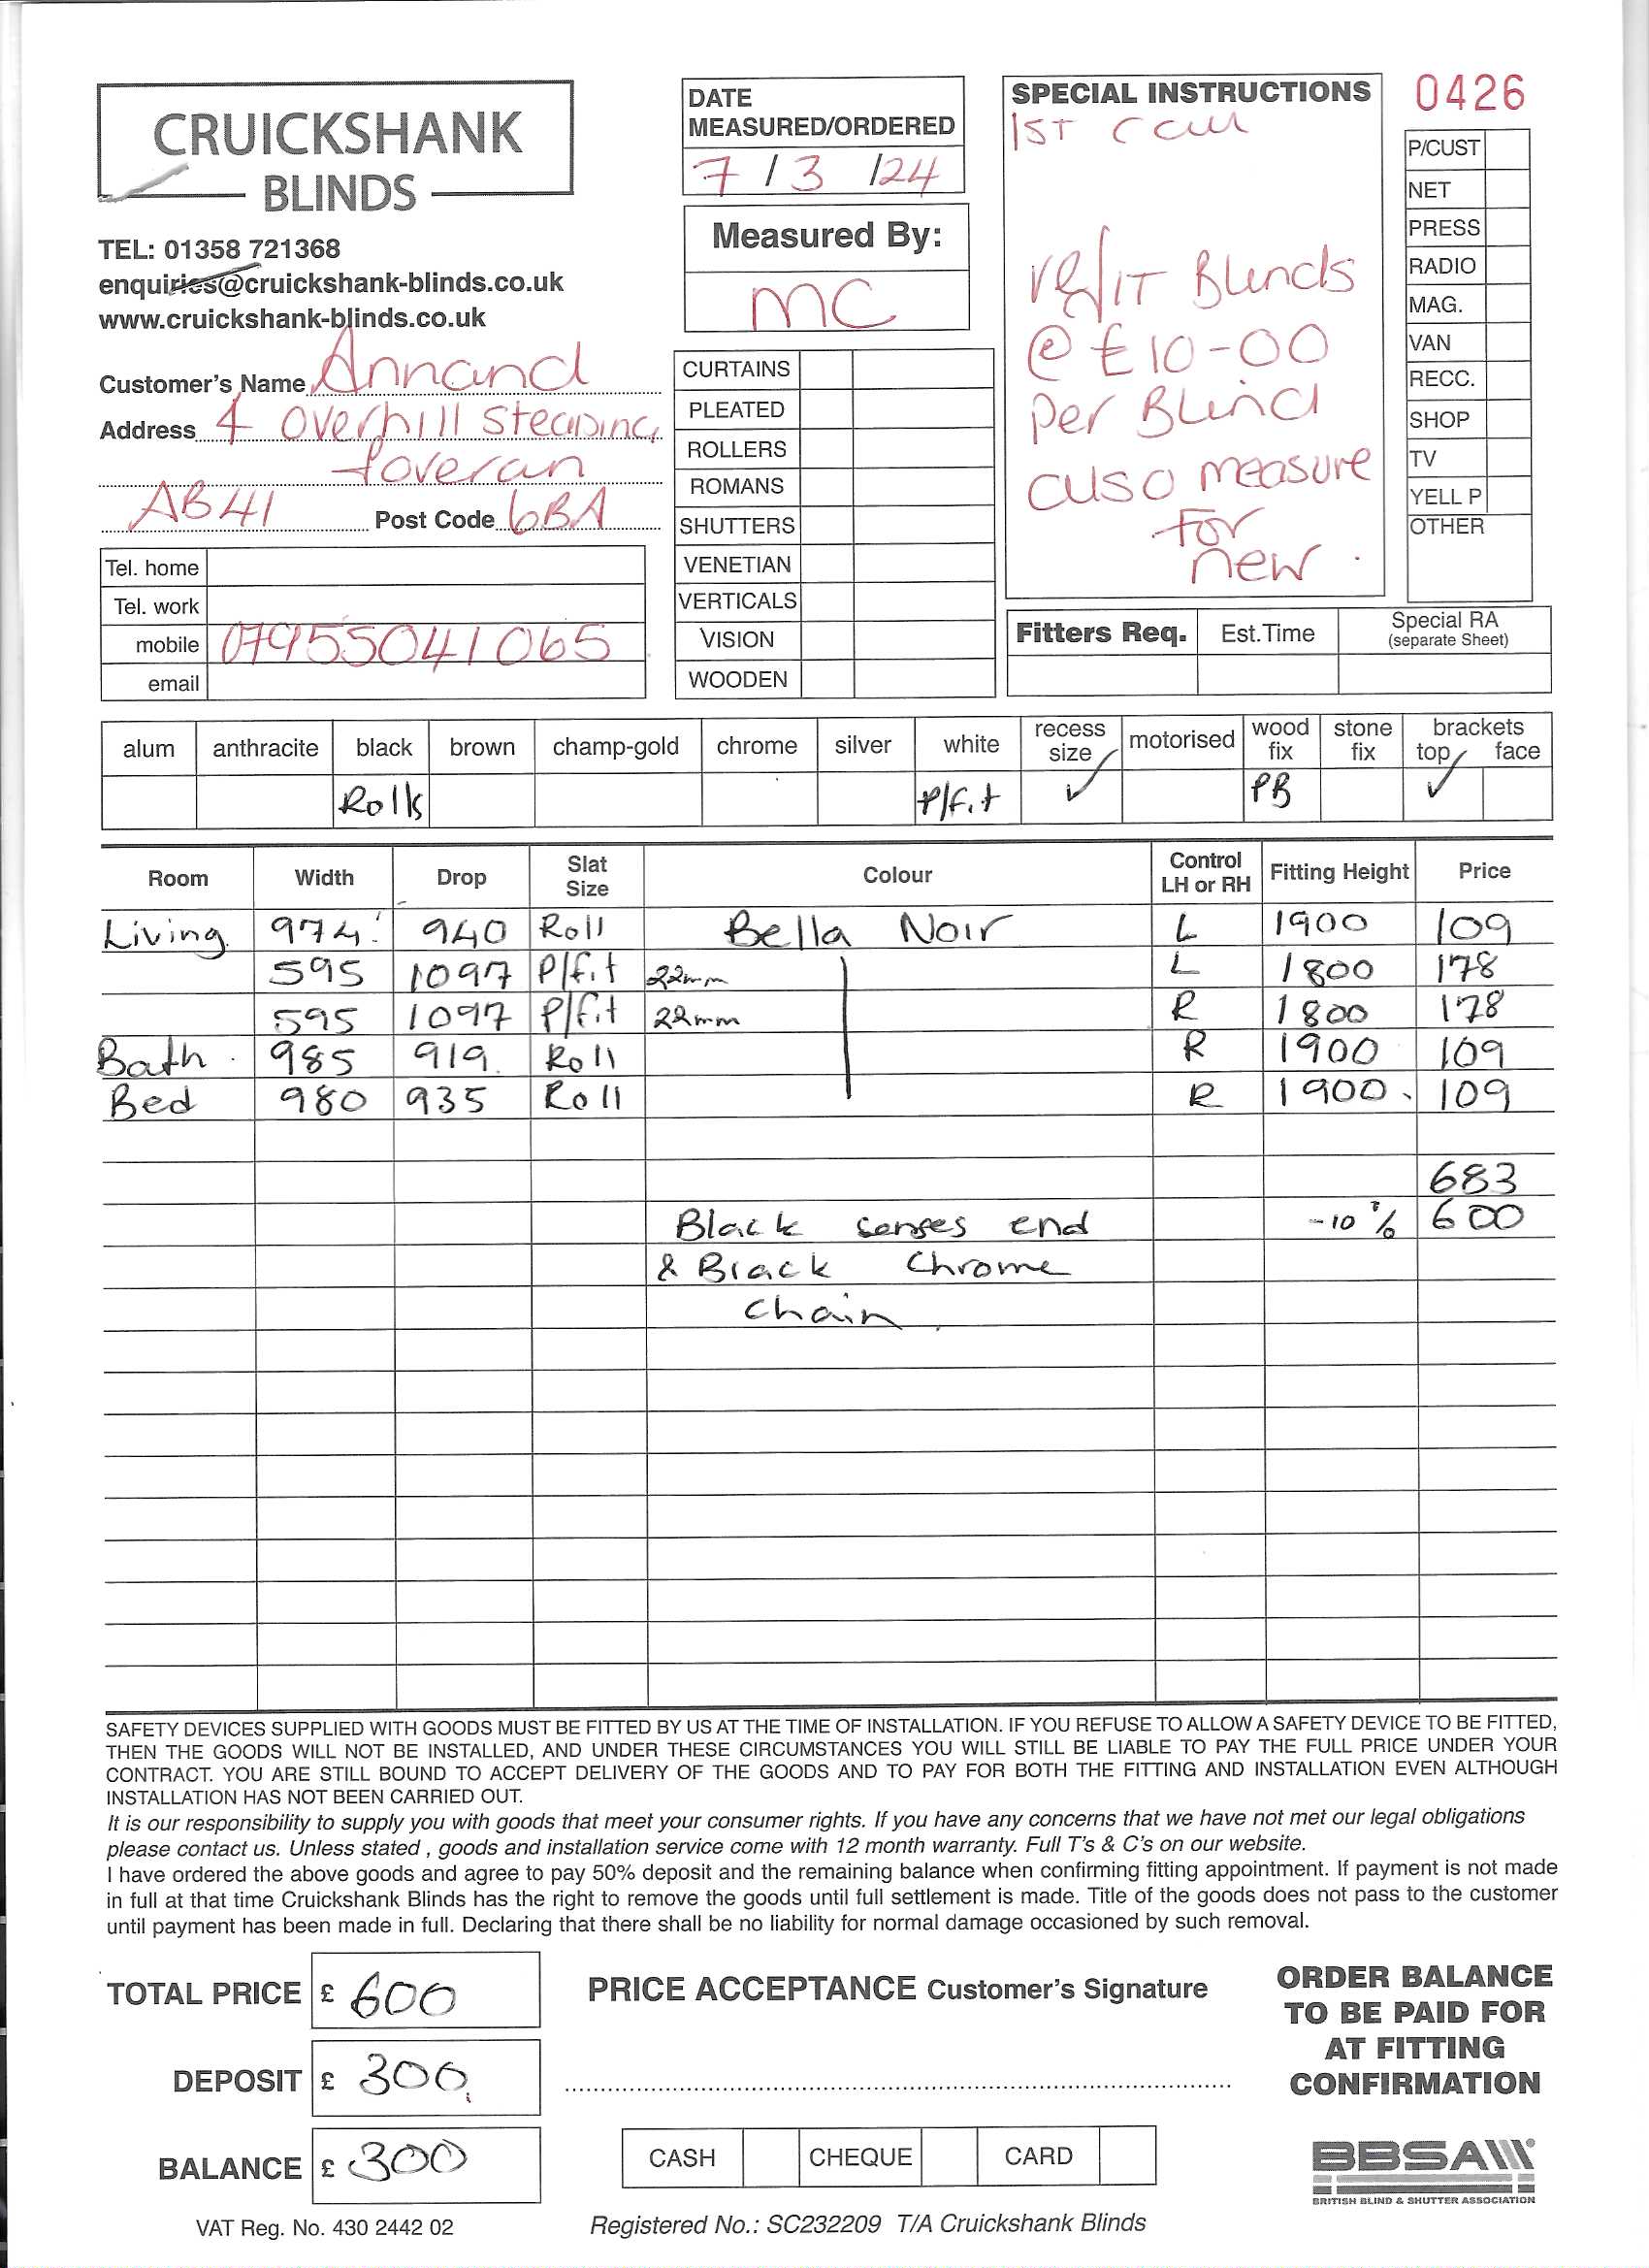 CRUICKSHANK
BLINDS
TEL: 01358 721368
enquiries@cruickshank-blinds.co.uk
www.cruickshank-blinds.co.uk
DATE
MEASURED/ORDERED
7 / 3 /24
Measured By:
MC
SPECIAL INSTRUCTIONS
1ST Call
refit Blinds
@ £10-00
per Blind
also measure
for
new.
0426
P/CUST
NET
PRESS
RADIO
MAG.
VAN
RECC.
SHOP
TV
YELL P
OTHER
Customer's Name Annand
Address 4 Overhill Steading
Foveran
AB41 Post Code 6BA
Tel. home
Tel. work
mobile 07955041065
email
CURTAINS
PLEATED
ROLLERS
ROMANS
SHUTTERS
VENETIAN
VERTICALS
VISION
WOODEN
Fitters Req. Est.Time Special RA
(separate Sheet)
alum anthracite black brown champ-gold chrome silver white recess size motorised wood fix stone fix brackets top face
Rolls P/fit ✓ PB ✓
Room Width Drop Slat Size Colour Control LH or RH Fitting Height Price
Living 974 940 Roll Bella Noir L 1900 109
595 1097 P/fit 22mm L 1800 178
595 1097 P/fit 22mm R 1800 178
Bath 985 919 Roll R 1900 109
Bed 980 935 Roll R 1900 109
683
Black senses end -10% 600
& Black Chrome
Chain
SAFETY DEVICES SUPPLIED WITH GOODS MUST BE FITTED BY US AT THE TIME OF INSTALLATION. IF YOU REFUSE TO ALLOW A SAFETY DEVICE TO BE FITTED,
THEN THE GOODS WILL NOT BE INSTALLED, AND UNDER THESE CIRCUMSTANCES YOU WILL STILL BE LIABLE TO PAY THE FULL PRICE UNDER YOUR
CONTRACT. YOU ARE STILL BOUND TO ACCEPT DELIVERY OF THE GOODS AND TO PAY FOR BOTH THE FITTING AND INSTALLATION EVEN ALTHOUGH
INSTALLATION HAS NOT BEEN CARRIED OUT.
It is our responsibility to supply you with goods that meet your consumer rights. If you have any concerns that we have not met our legal obligations
please contact us. Unless stated , goods and installation service come with 12 month warranty. Full T's & C's on our website.
I have ordered the above goods and agree to pay 50% deposit and the remaining balance when confirming fitting appointment. If payment is not made
in full at that time Cruickshank Blinds has the right to remove the goods until full settlement is made. Title of the goods does not pass to the customer
until payment has been made in full. Declaring that there shall be no liability for normal damage occasioned by such removal.
TOTAL PRICE £ 600
DEPOSIT £ 300
BALANCE £ 300
VAT Reg. No. 430 2442 02
PRICE ACCEPTANCE Customer's Signature
CASH CHEQUE CARD
Registered No.: SC232209 T/A Cruickshank Blinds
ORDER BALANCE
TO BE PAID FOR
AT FITTING
CONFIRMATION
BBSA
BRITISH BLIND & SHUTTER ASSOCIATION